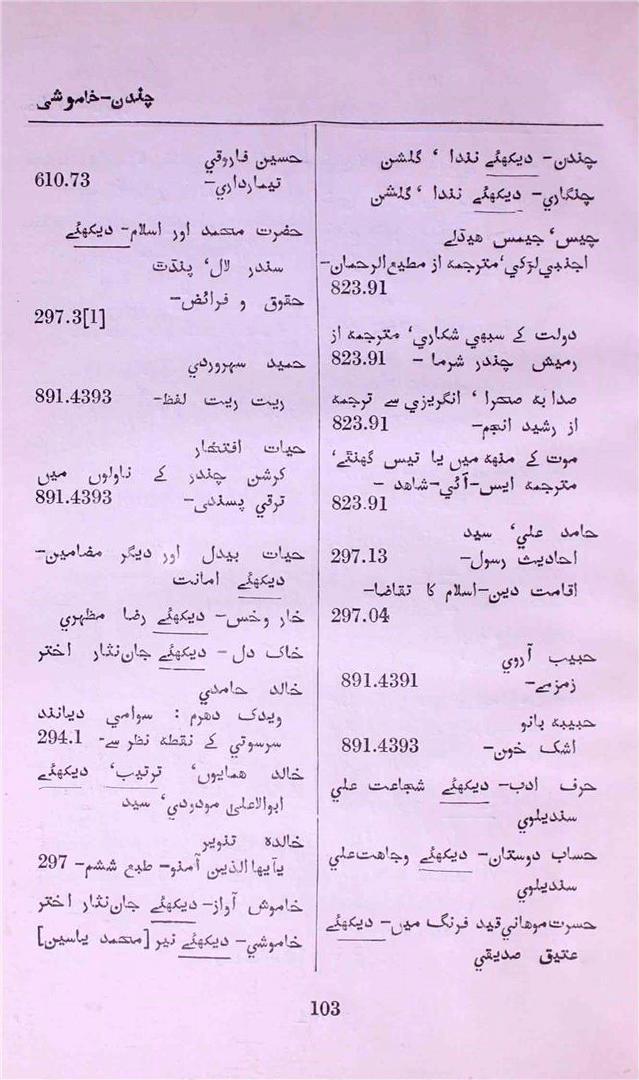 چندن-خاموشی
چندن- دیکھئے نندا ' گلشن
چنگاري- دیکھئے نندا ' گلشن
چیس' جیمس ھیڈلے
اجنبي لڑکي' مترجمہ از مطیع الرحمان-
823.91
دولت کے سبھي شکاري' مترجمہ از
رمیش چندر شرما - 823.91
صدا بہ صحرا ' انگریزي سے ترجمہ
از رشید انجم- 823.91
موت کے منھ میں یا تیس گھنٹے'
مترجمہ ایس-آئي-شاھد -
823.91
حامد علي' سید
احادیث رسول- 297.13
اقامت دین-اسلام کا تقاضا-
297.04
حبیب آروي
زمزمے- 891.4391
حبیبہ بانو
اشک خون- 891.4393
حرف ادب- دیکھئے شجاعت علي
سندیلوي
حساب دوستاں- دیکھئے وجاھت علي
سندیلوي
حسرت موھاني قید فرنگ میں- دیکھئے
عتیق صدیقي
حسین فاروقي
تیمارداري- 610.73
حضرت محمد اور اسلام- دیکھئے
سندر لال' پنڈت
حقوق و فرائض-
297.3[1]
حمید سہروردي
ریت ریت لفظ- 891.4393
حیات افتخار
کرشن چندر کے ناولوں میں
ترقي پسندی- 891.4393
حیات بیدل اور دیگر مضامین-
دیکھئے امانت
خار و خس- دیکھئے رضا مظہري
خاک دل - دیکھئے جاں نثار اختر
خالد حامدي
ویدک دھرم : سوامي دیانند
سرسوتي کے نقطہ نظر سے- 294.1
خالد ھمایوں' ترتیب' دیکھئے
ابوالاعلیٰ مودودي' سید
خالدہ تنویر
یآیہا الذین آمنو- طبع ششم- 297
خاموش آواز- دیکھئے جاں نثار اختر
خاموشي- دیکھئے نیر [محمد یاسین]
103